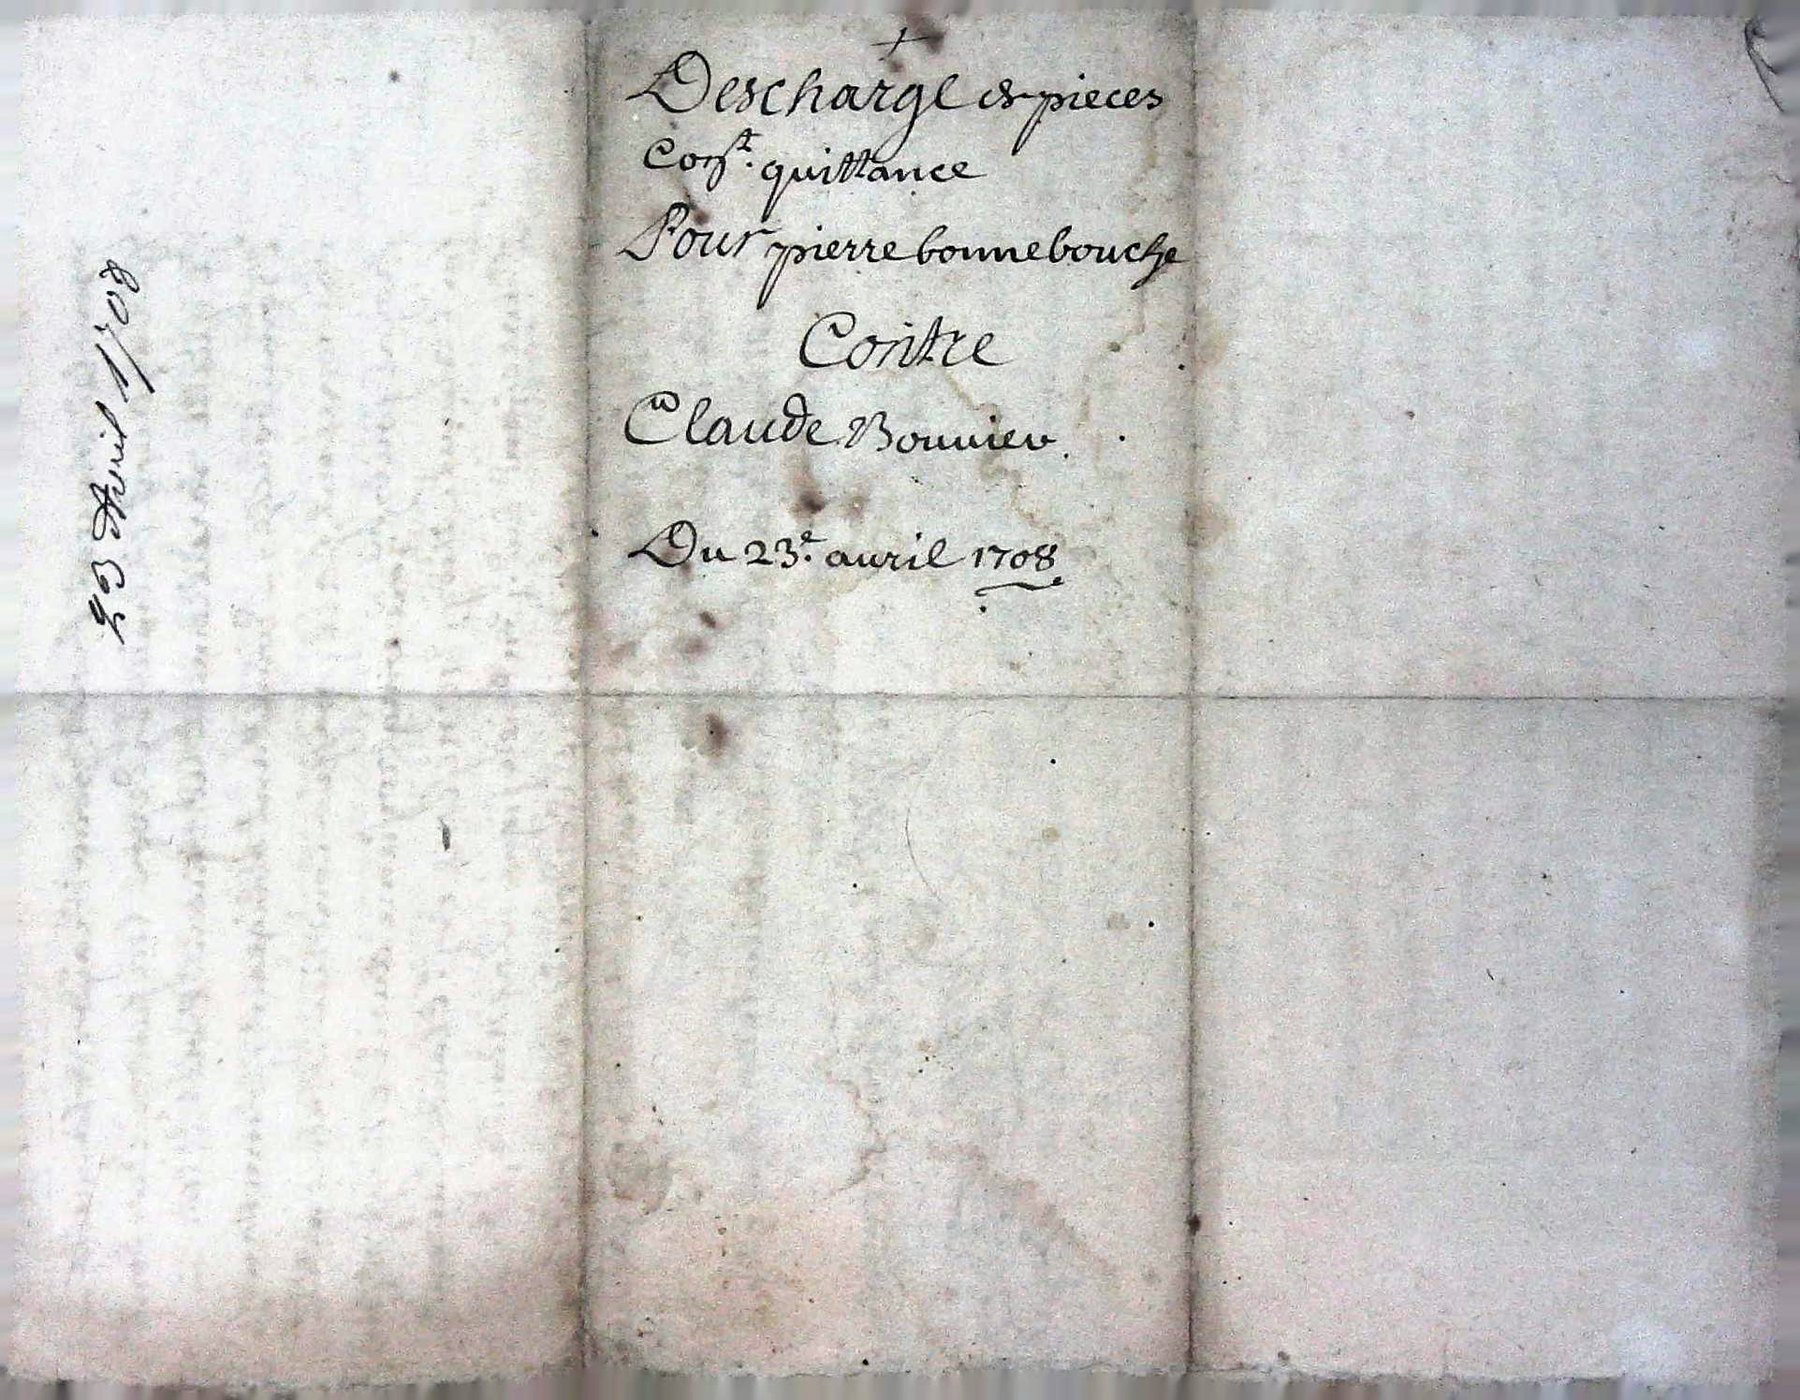 +
Descharge de pieces
Const. quittance
Pour pierre bonnebouche
Contre
Claude Bouuier.
Du 23e. auril 1708
23 Avril 1708